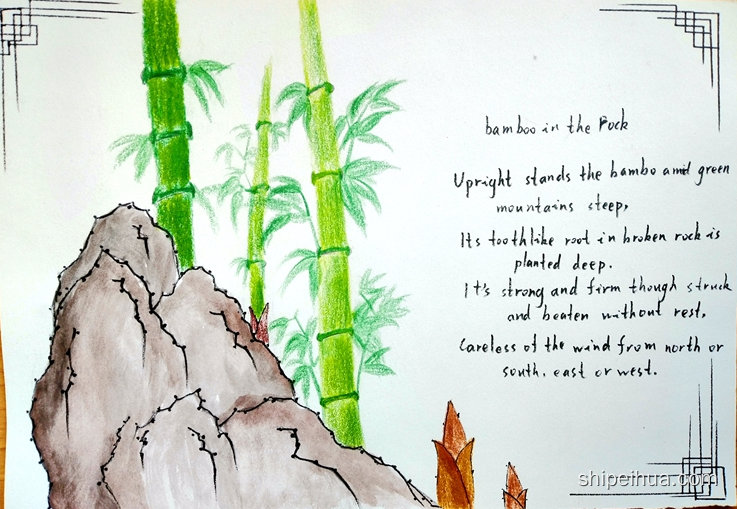 bamboo in the Rock
Upright stands the bambo amid green
mountains steep,
Its toothlike root in broken rock is
planted deep.
It's strong and firm though struck
and beaten without rest,
Careless of the wind from north or
south, east or west.
shipeihua.com